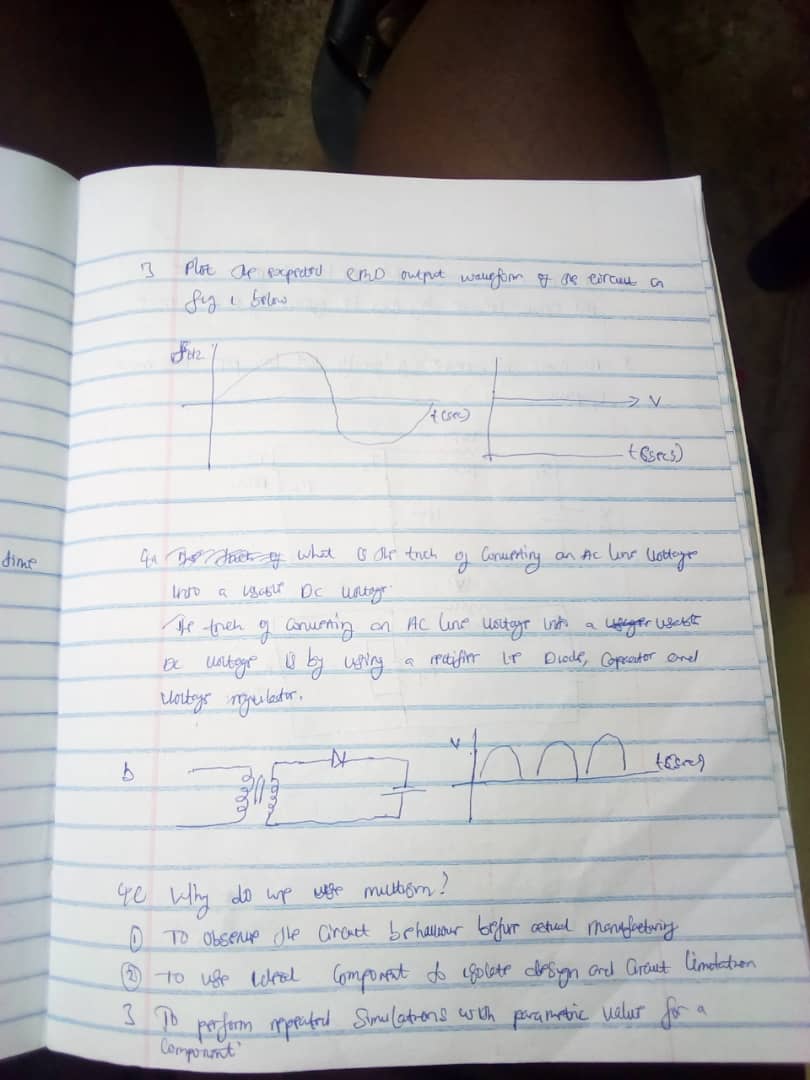 3 Plot the expected CRO output waveform of the circuit in
fig 1 below
t(sec)
V
t(secs)
time
4a what is the trick of converting an AC line voltage
into a usable DC voltage.
The trick of converting an AC line voltage into a usable
DC voltage is by using a rectifier i.e Diode, Capacitor and
Voltage regulator.
b
V
t(secs)
4c Why do we use multism?
① To observe the circuit behaviour before actual manufacturing
② To use ideal component to isolate design and circuit limitation
3 To perform repeated simulations with parametric value for a
component